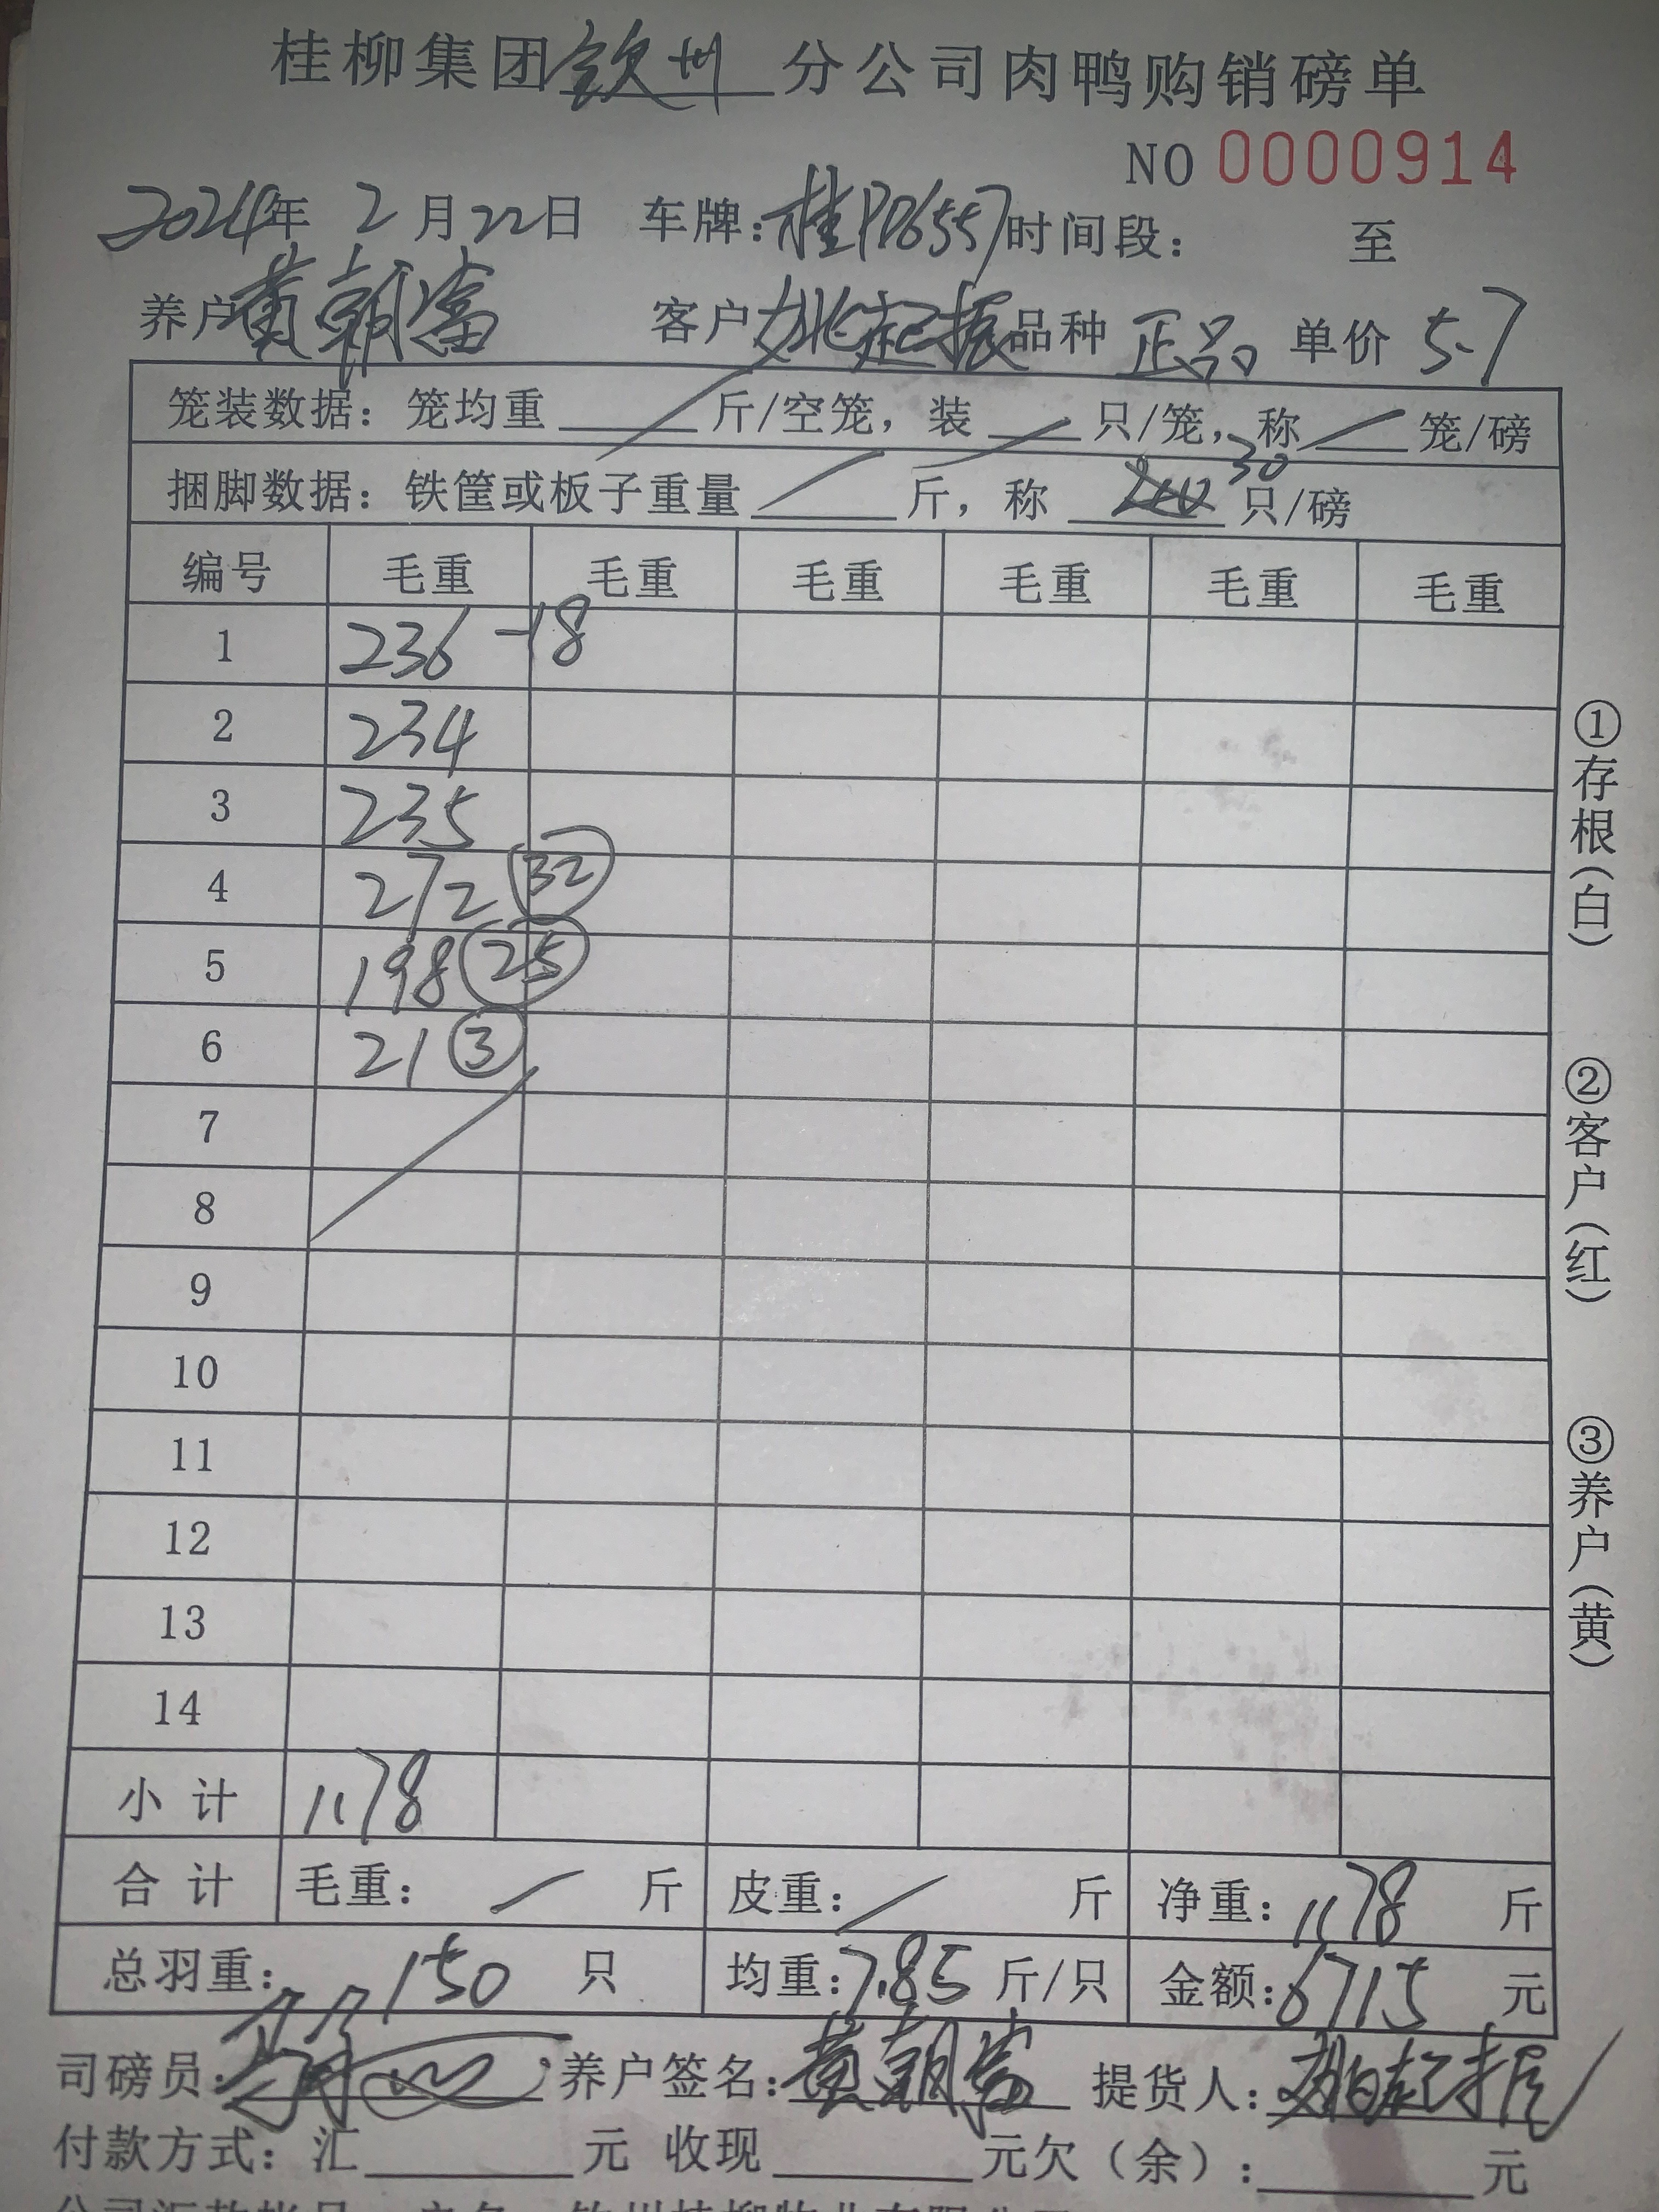 桂柳集团钦州分公司肉鸭购销磅单
NO 0000914
2024年 2月22日 车牌：桂PD6557时间段： 至
养户黄朝富 客户姚起振品种 正品 单价 5.7
笼装数据：笼均重 斤/空笼，装 只/笼，称 笼/磅
捆脚数据：铁筐或板子重量 斤，称 30 只/磅
编号 毛重 毛重 毛重 毛重 毛重 毛重
1 236 -18
2 234
3 235
4 272 32
5 198 25
6 21 3
7
8
9
10
11
12
13
14
小计 1178
合计 毛重： 斤 皮重： 斤 净重：1178 斤
总羽重：150 只 均重：7.85 斤/只 金额：6715 元
司磅员： 养户签名：黄朝富 提货人：姚起振
付款方式：汇 元 收现 元欠（余）： 元
①存根（白）
②客户（红）
③养户（黄）